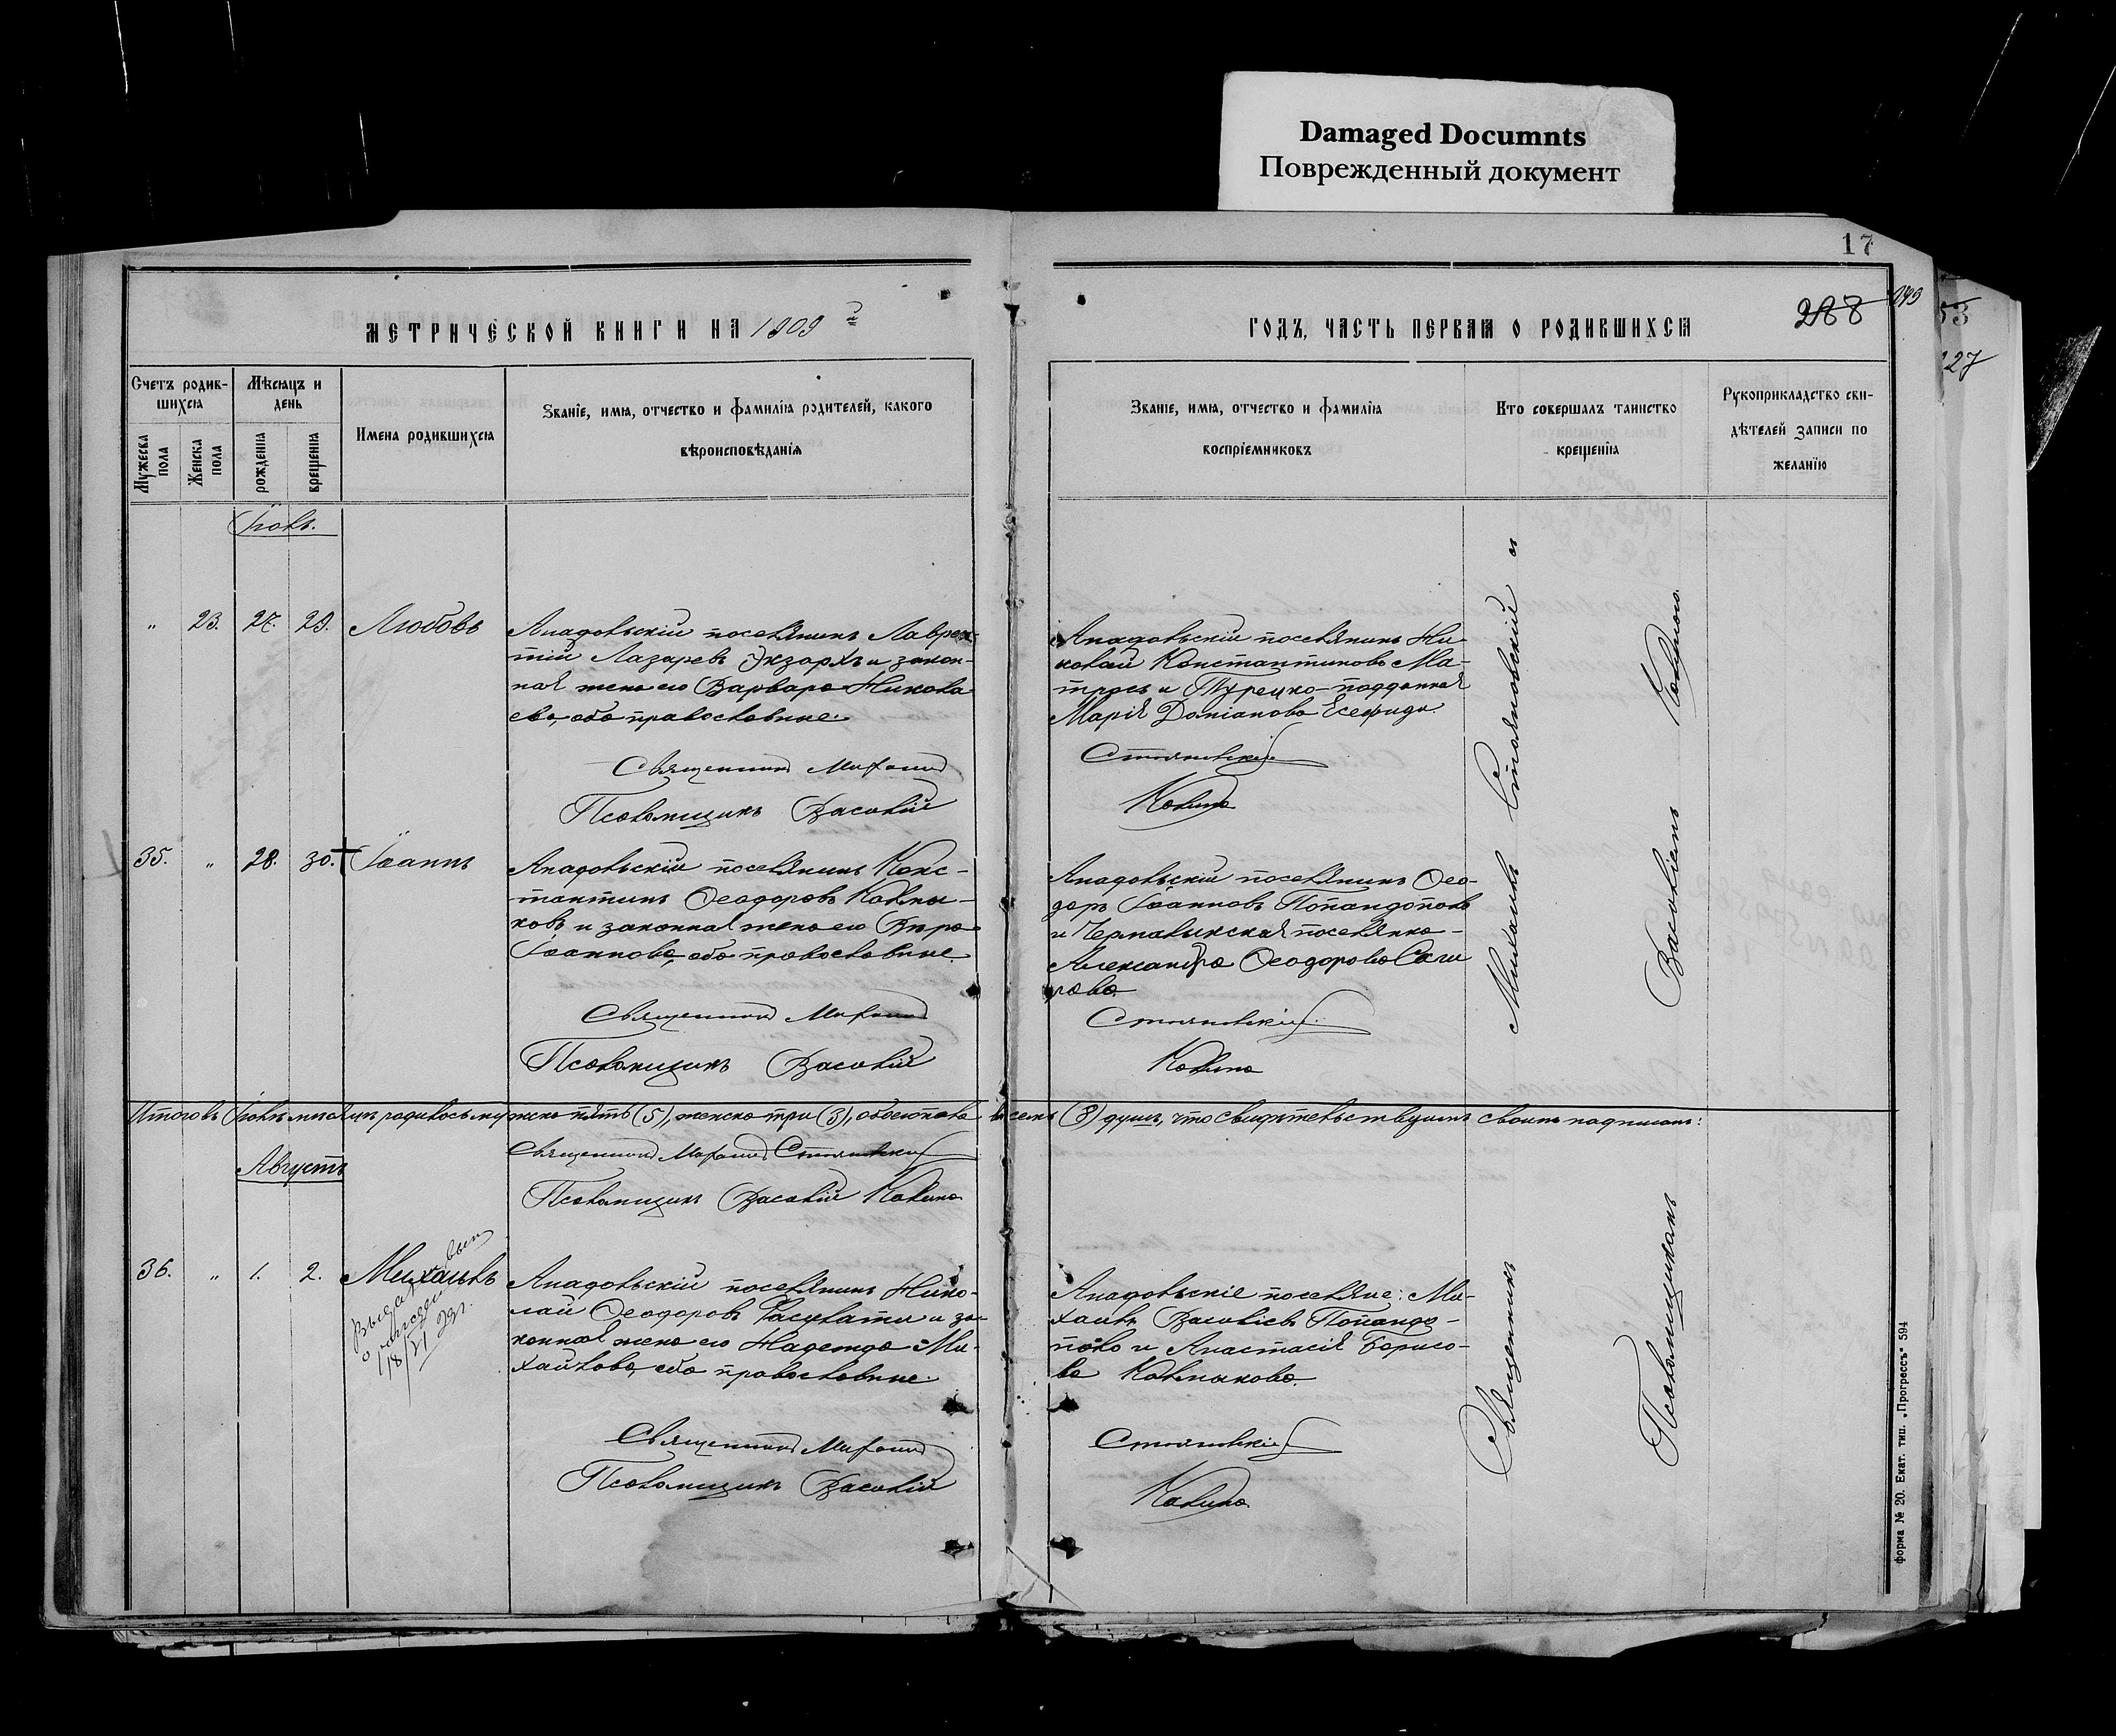 Damaged Documnts
Поврежденный документ
17
288
МЕТРИЧЕСКОЙ КНИГИ НА 1909 й
ГОДЪ, ЧАСТЬ ПЕРВАЯ О РОДИВШИХСЯ
Счетъ родив-
шихся
Мѣсяцъ и
день
Мужеска
пола
Женска
пола
рожденія
крещенія
Имена родившихся
Званіе, имя, отчество и фамилія родителей, какого
вѣроисповѣданія
Званіе, имя, отчество и фамилія
воспріемниковъ
Кто совершалъ таинство
крещенія
Рукоприкладство сви-
дѣтелей записи по
желанію
Іюль.
" 23. 27. 29. Любовь
Анадольскій поселянинъ Лаврен-
тій Лазаревъ Экзархъ и закон-
ная жена его Варвара Никола
ева, оба православные.
Священникъ Михаилъ
Псаломщикъ Василій
Анадольскій поселянинъ Ни-
колай Константиновъ Ма-
трось и Турецко-подданная
Марія Даміанова
Стояновскій
Калина
35. " 28. 30. Іоаннъ
Анадольскій поселянинъ Конс-
тантинъ Ѳеодоровъ Калмы-
ковъ и законная жена его Вѣра
Іоаннова, оба православные.
Священникъ Михаилъ
Псаломщикъ Василій
Анадольскій поселянинъ Ѳео-
доръ Іоанновъ Попандопово
и поселянка
Александра Ѳеодорова Саги
рова
Стояновскій
Калина
Итого въ Іюлѣ мѣсяцѣ родилось мужска пять (5), женска три (3), обоего пола восемь (8) душъ, что свидѣтельствуемъ своимъ подписомъ:
Священникъ Михаилъ Стояновскій
Псаломщикъ Василій Калина
Августъ
36. " 1. 2. Михаилъ
Анадольскій поселянинъ Нико-
лай Ѳеодоровъ и за-
конная жена его Надежда Ми-
хайлова, оба православные.
Священникъ Михаилъ
Псаломщикъ Василій
Анадольскіе поселяне: Ми-
хаилъ Васильевъ Попандо-
пово и Анастасія Борисо-
ва Калмыкова.
Стояновскій
Калина
Священникъ Михаилъ Стояновскій и
Псаломщикомъ Василіемъ Калиною.
форма № 20. Екат. тип. „Прогрессъ" 594